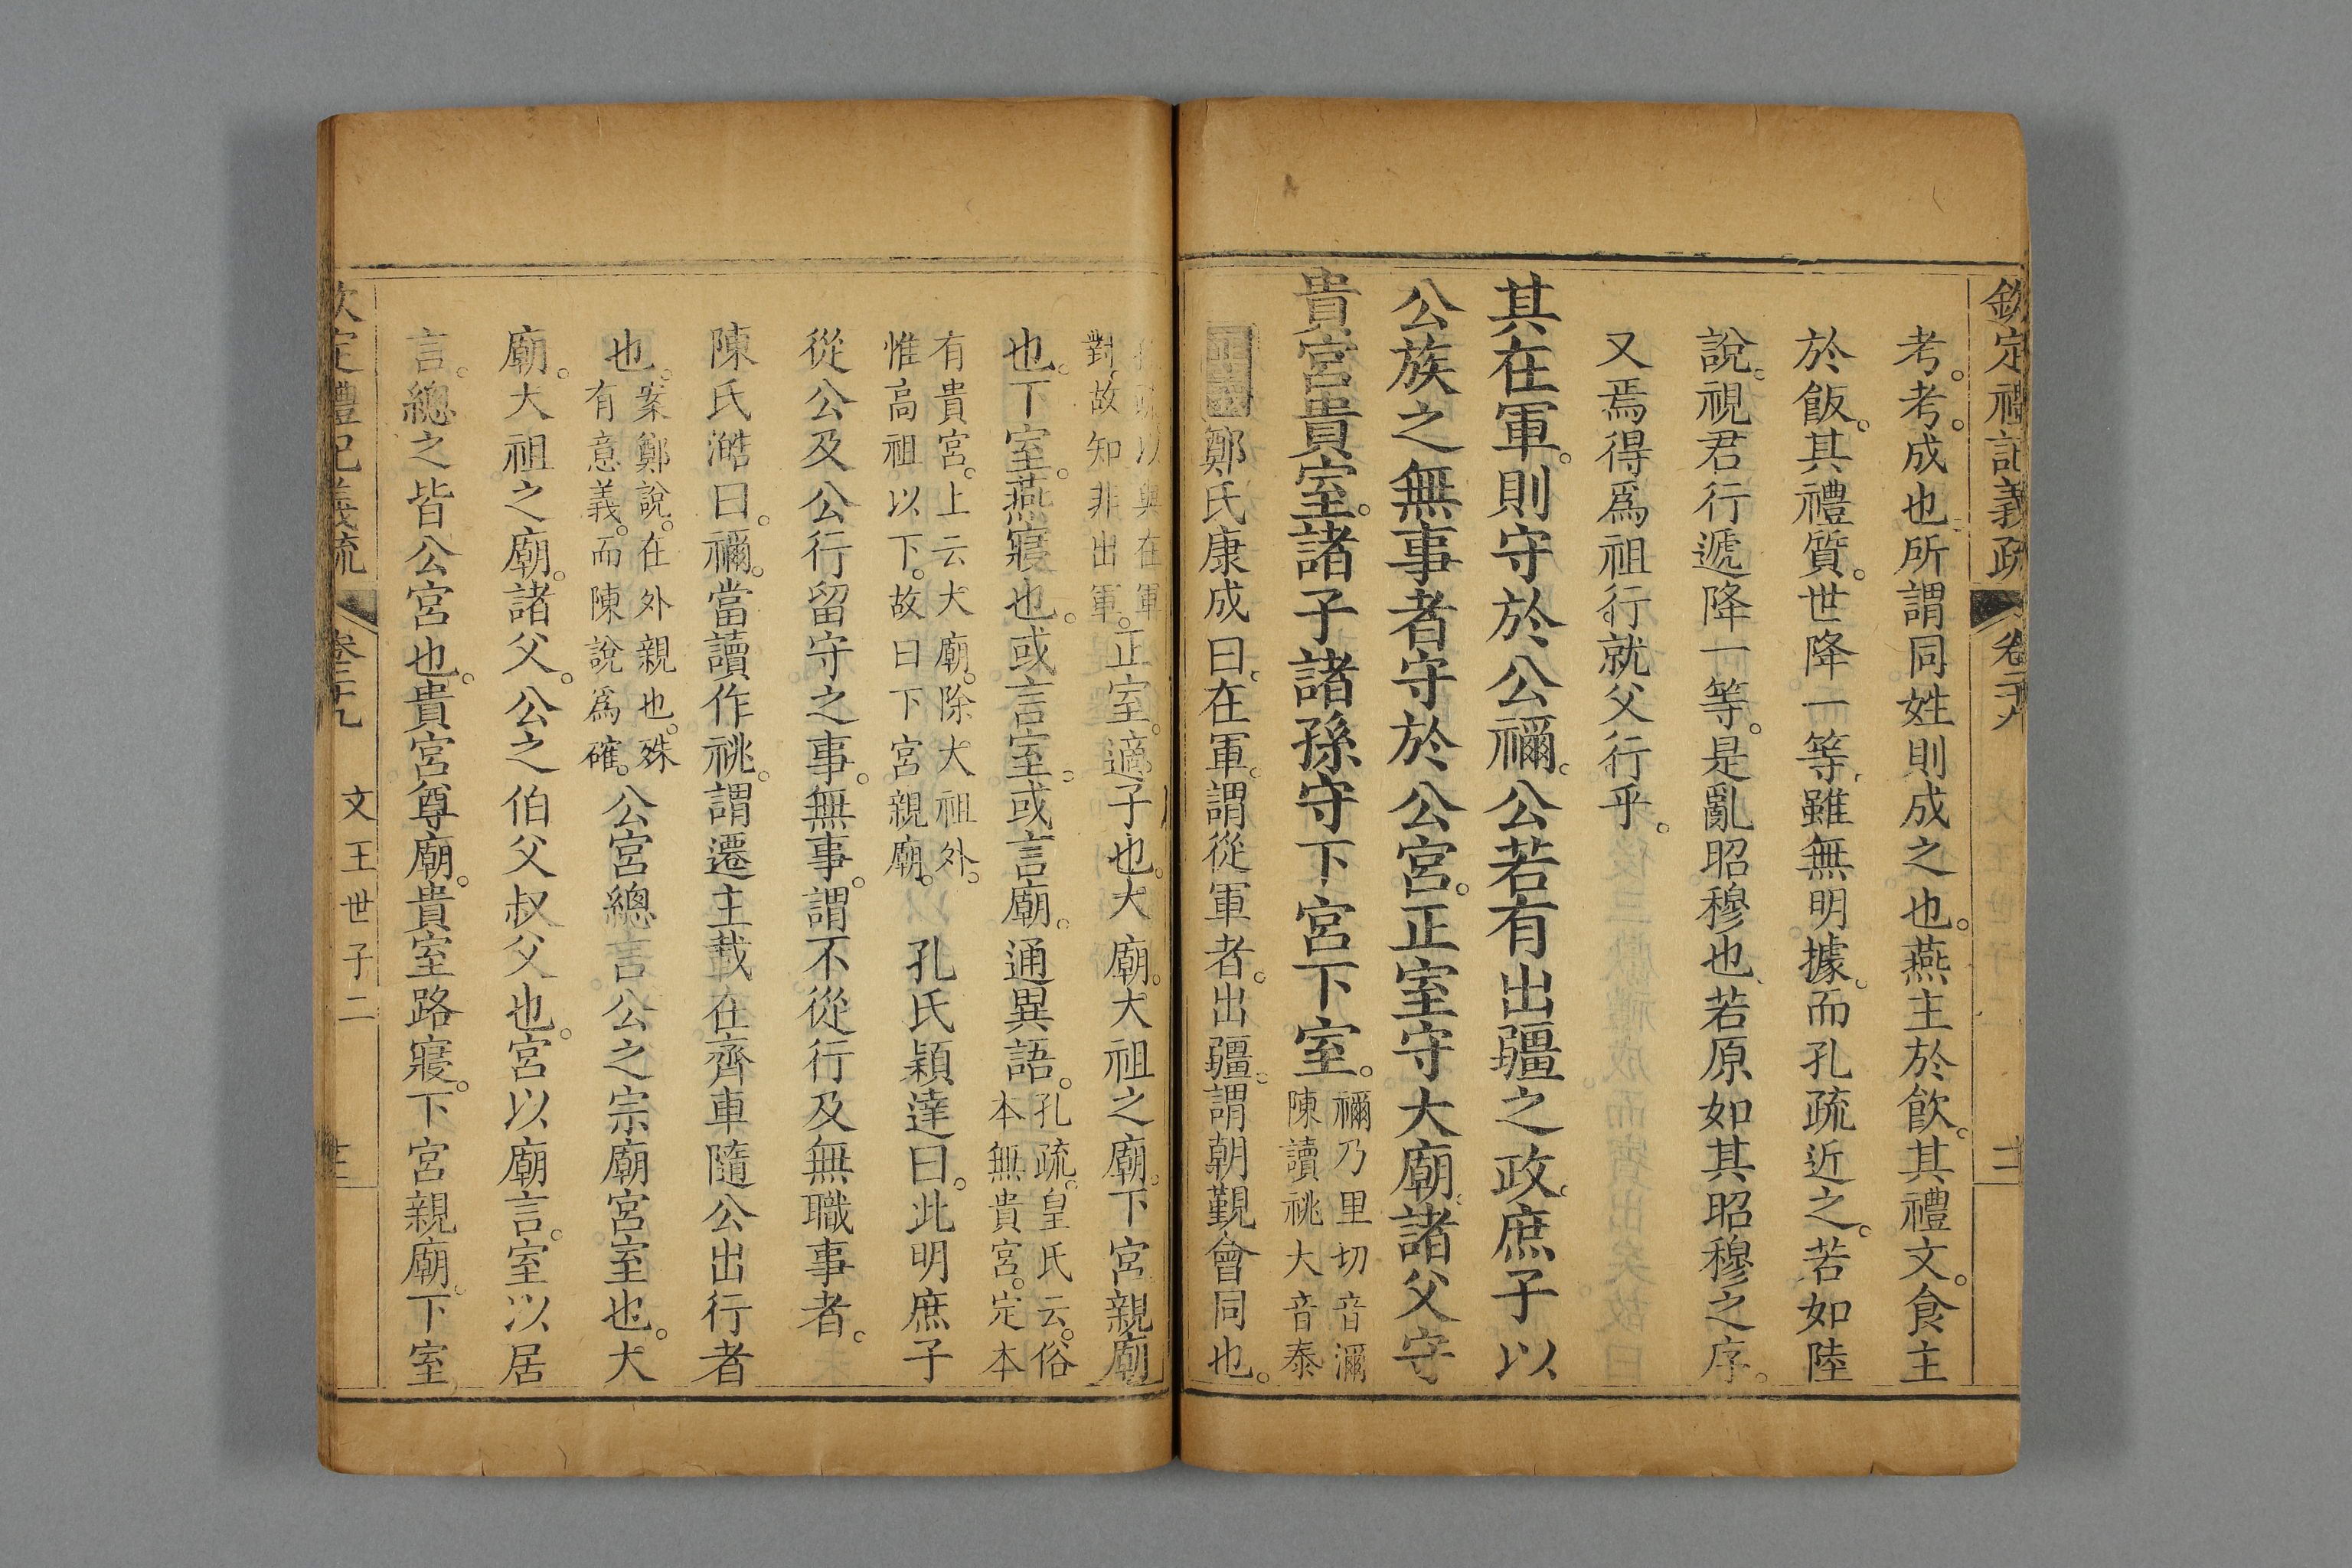 欽定禮記義疏
考。考。成也所謂同姓則成之也。燕主於飲。其禮文。食主
於飯。其禮質。世降一等。雖無明據。而孔疏近之。若如陸
說。視君行遞降一等。是亂昭穆也、若原如其昭穆之序。
又焉得爲祖行就父行乎。
其在軍。則守於公禰。公若有出疆之政。庶子以
公族之無事者守於公宮。正室守大廟。諸父守
貴宮貴室。諸子諸孫守下宮下室。
禰乃里切音瀰
陳讀祧大音泰
正義鄭氏康成曰。在軍。謂從軍者。出疆。謂朝覲會同也。
與在軍
對。故知非出軍。
正室。適子也。大廟。大祖之廟。下宮親廟
也。下室。燕寢也。或言室。或言廟。通異語。
孔疏。皇氏云。俗
本無貴宮。定本
有貴宮。上云大廟。除大祖外。
惟高祖以下。故曰下宮親廟。
孔氏穎達曰。此明庶子
從公及公行留守之事。無事。謂不從行及無職事者。
陳氏澔曰。禰。當讀作祧。謂遷主載在齊車隨公出行者
也。
案鄭說。在外親也。殊
有意義。而陳說爲確。
公宮總言公之宗廟宮室也。大
廟。大祖之廟。諸父。公之伯父叔父也。宮以廟言。室以居
言。總之皆公宮也。貴宮尊廟。貴室路寢。下宮親廟。下室
文王世子二